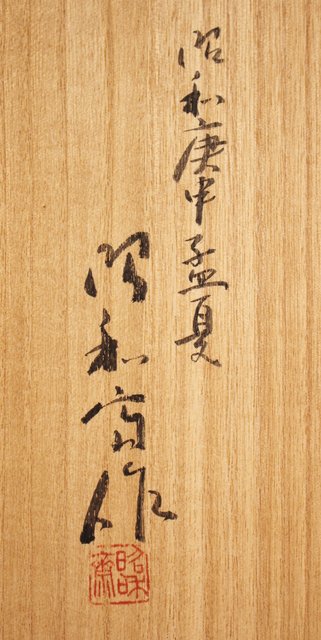 昭和庚申孟夏
昭和斎作
昭和齋